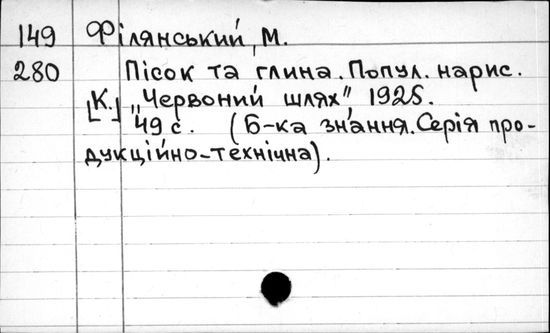 149 Філянський, М.
280 Пісок та глина. Попул. нарис.
[К.] „Червоний шлях", 1925.
49 с. (Б-ка знання. Серія про-
дукційно-технічна).